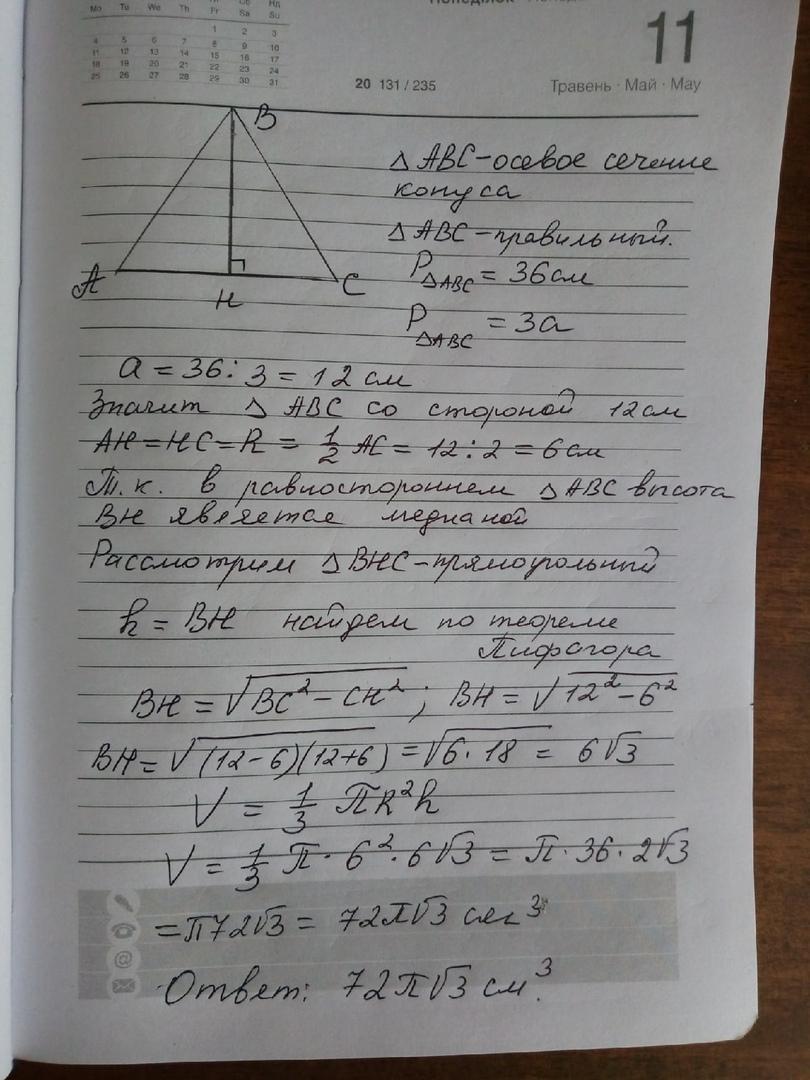 Mo Tu We Th Fr Sa Su
1 2 3
4 5 6 7 8 9 10
11 12 13 14 15 16 17
18 19 20 21 22 23 24
25 26 27 28 29 30 31
11
20 131 / 235
Травень · Май · May
B
A
H
C
△ABC-осевое сечение
конуса
△ABC-правильный.
P△ABC = 36см
P△ABC = 3a
a = 36 : 3 = 12 см
Значит △ ABC со стороной 12см
AH=HC=R = 1/2 AC = 12:2 = 6см
Т.к. в равностороннем △ABC высота
BH является медианой
Рассмотрим △BHC-прямоугольный
h = BH найдем по теореме
Пифагора
BH = √BC² – CH² ; BH = √12² – 6²
BH = √(12-6)(12+6) = √6·18 = 6√3
V = 1/3 πR²h
V = 1/3 π · 6² · 6√3 = π·36·2√3
=π72√3 = 72π√3 см³
Ответ: 72π√3 см³.